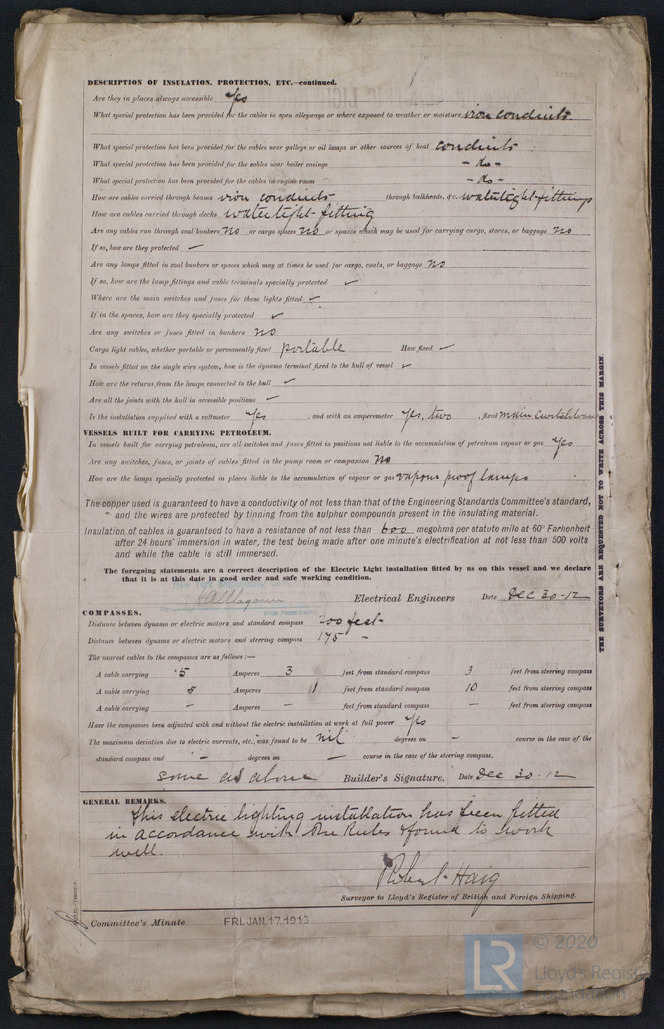 DESCRIPTION OF INSULATION, PROTECTION, ETC.—continued.
Are they in places always accessible Yes
What special protection has been provided for the cables in open alleyways or where exposed to weather or moisture iron conduits
What special protection has been provided for the cables near galleys or oil lamps or other sources of heat conduits
What special protection has been provided for the cables near boiler casings - do -
What special protection has been provided for the cables in engine room - do -
How are cables carried through beams iron conduits through bulkheads, &c. watertight fittings
How are cables carried through decks watertight fitting
Are any cables run through coal bunkers no or cargo spaces no or spaces which may be used for carrying cargo, stores, or baggage no
If so, how are they protected ✓
Are any lamps fitted in coal bunkers or spaces which may at times be used for cargo, coals, or baggage no
If so, how are the lamp fittings and cable terminals specially protected ✓
Where are the main switches and fuses for these lights fitted ✓
If in the spaces, how are they specially protected ✓
Are any switches or fuses fitted in bunkers no
Cargo light cables, whether portable or permanently fixed portable How fixed ✓
In vessels fitted on the single wire system, how is the dynamo terminal fixed to the hull of vessel ✓
How are the returns from the lamps connected to the hull ✓
Are all the joints with the hull in accessible positions ✓
Is the installation supplied with a voltmeter Yes, and with an amperemeter Yes, two, fixed main switchboard
VESSELS BUILT FOR CARRYING PETROLEUM.
In vessels built for carrying petroleum, are all switches and fuses fitted in positions not liable to the accumulation of petroleum vapour or gas Yes
Are any switches, fuses, or joints of cables fitted in the pump room or companion No
How are the lamps specially protected in places liable to the accumulation of vapour or gas vapour proof lamps
The copper used is guaranteed to have a conductivity of not less than that of the Engineering Standards Committee's standard,
and the wires are protected by tinning from the sulphur compounds present in the insulating material.
Insulation of cables is guaranteed to have a resistance of not less than 600 megohms per statute mile at 60° Farhenheit
after 24 hours' immersion in water, the test being made after one minute's electrification at not less than 500 volts
and while the cable is still immersed.
The foregoing statements are a correct description of the Electric Light installation fitted by us on this vessel and we declare
that it is at this date in good order and safe working condition.
Electrical Engineers Date Dec 30-12
COMPASSES.
Distance between dynamo or electric motors and standard compass 200 feet-
Distance between dynamo or electric motors and steering compass 175 "
The nearest cables to the compasses are as follows:—
A cable carrying 5 Amperes 3 feet from standard compass 3 feet from steering compass
A cable carrying 8 Amperes 11 feet from standard compass 10 feet from steering compass
A cable carrying - Amperes - feet from standard compass - feet from steering compass
Have the compasses been adjusted with and without the electric installation at work at full power Yes
The maximum deviation due to electric currents, etc., was found to be nil degrees on - course in the case of the
standard compass and - degrees on - course in the case of the steering compass.
same as above Builder's Signature. Date Dec 30-12
GENERAL REMARKS.
This electric lighting installation has been fitted
in accordance with the Rules & found to work
well.
Robert Haig
Surveyor to Lloyd's Register of British and Foreign Shipping.
Committee's Minute FRI. JAN. 17 1913
THE SURVEYORS ARE REQUESTED NOT TO WRITE ACROSS THIS MARGIN.
LR © 2020
Lloyd's Register
Foundation